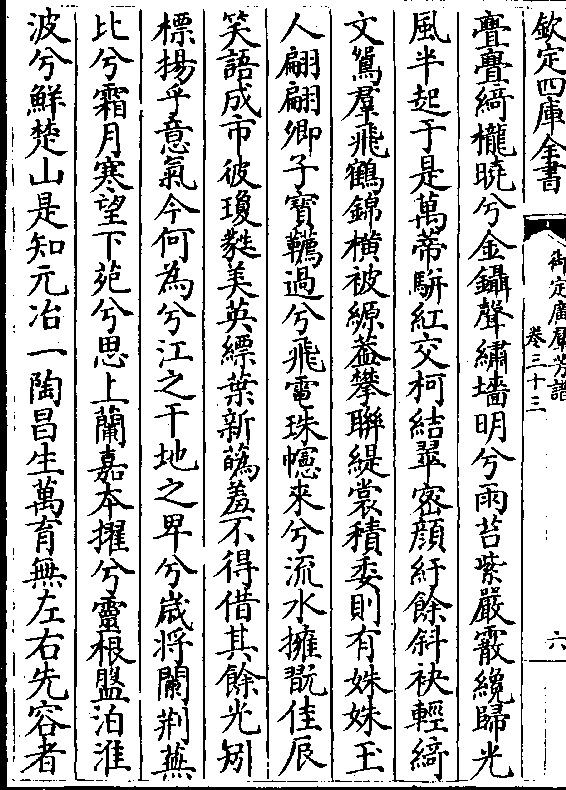 欽定四庫全書
御定廣羣芳譜
卷三十三
六
亹亹綺櫳曉兮金鑷聲繡墻明兮雨苔紫嚴霰纔歸光
風半起于是萬蒂駢紅交柯結翠密顔紆餘斜袂輕綺
文鴛羣飛鶴錦橫被縹葢攀聯緹裳積委則有姝姝玉
人翩翩卿子寳韉過兮飛電珠幰來兮流水擁翫佳辰
笑語成市彼瓊蕤美英縹葉新蘤羞不得借其餘光矧
標揚乎意氣今何為兮江之干地之卑兮嵗将闌荆蕪
比兮霜月寒望下苑兮思上蘭嘉本擢兮靈根盤泊淮
波兮鮮楚山是知元冶一陶昌生萬育無左右先容者